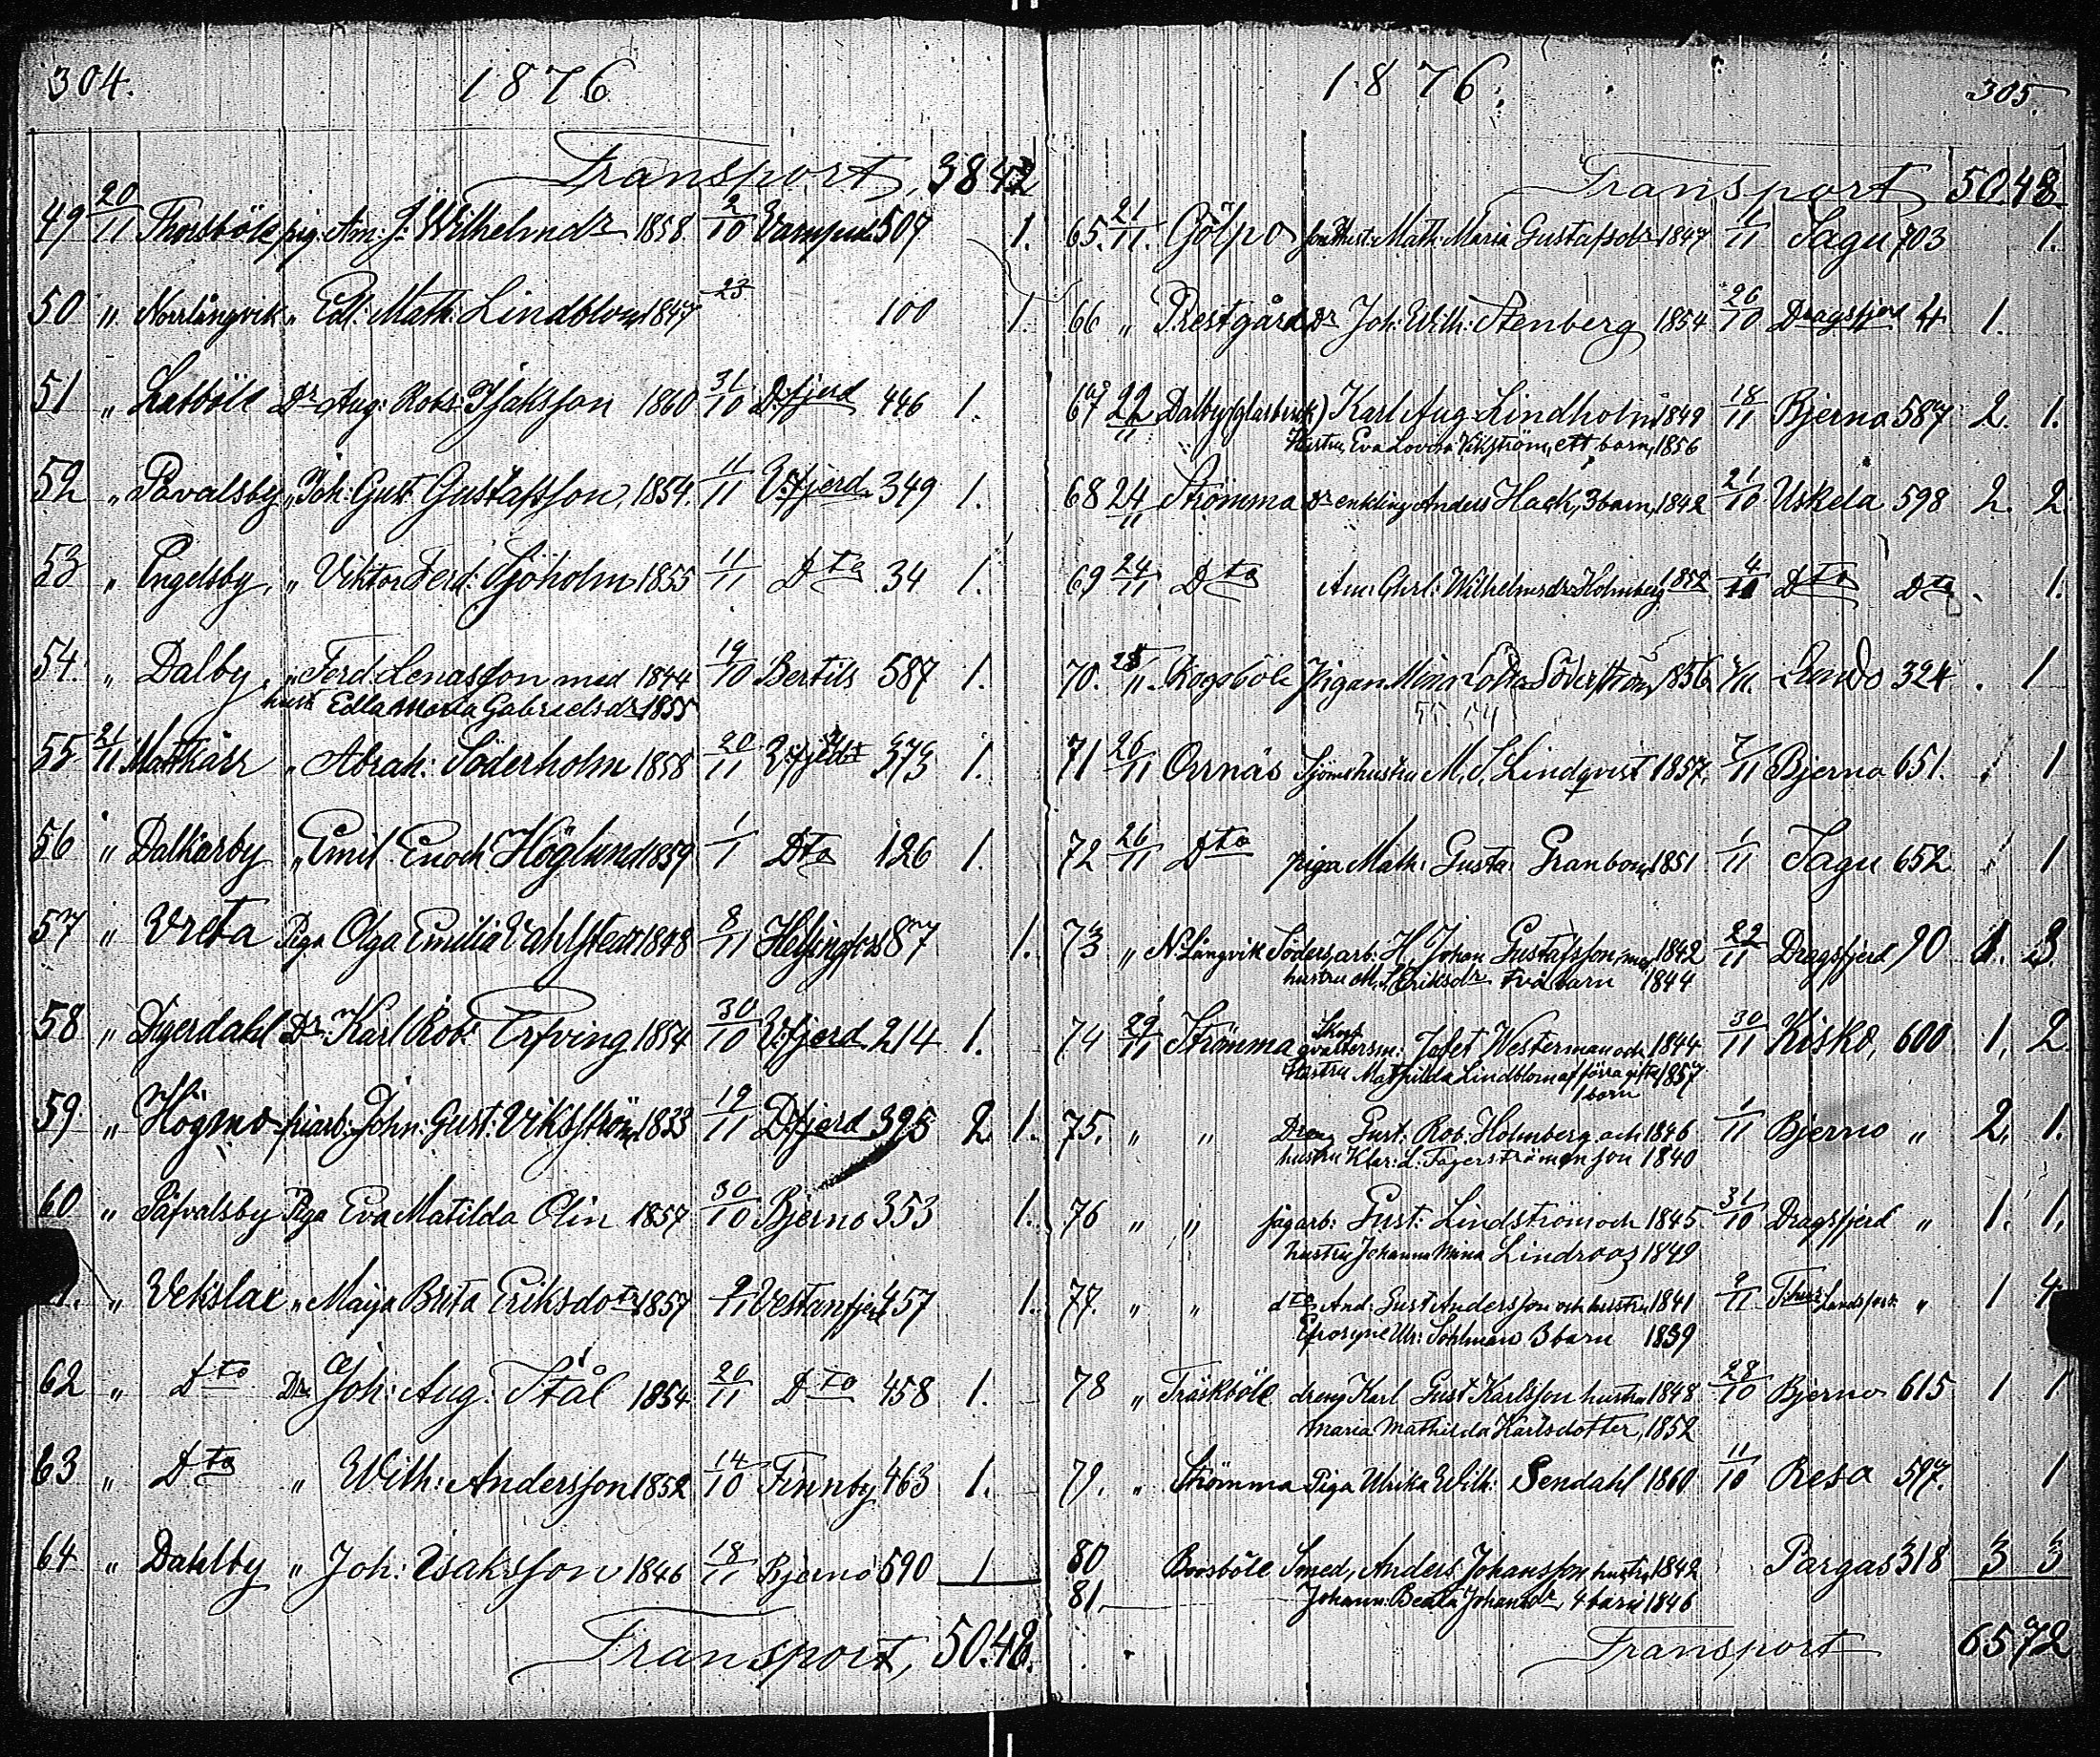 304.
1876
Transport, 38 42
49 20/11 Thorsböle pig. Am: J: Wilhelmdr 1858 2/10 507 1.
50 " Norrlångvik " Edl. Math: Lindblom 1847 23 100 1.
51 " Lasböle Dr Aug: Robt: Isaksson 1860 31/10 D:fjerd 446 1.
52 " Påvalsby " Joh: Gust: Gustafsson, 1854. 11/11 V:fjerd 349 1.
53 " Engelsby, " Viktor Ferd: Sjöholm 1855 11/11 Dto 34 1.
54. " Dalby, " Ferd: Lenasson med 1844 19/10 Bertils 587 1.
hustr Edla Maria Gabrielsdr 1855
55 21/11 Mattkärr " Abrah: Söderholm 1858 20/11 373 1.
56 " Dalkarby " Emil Enoch Höglund 1859 1/1 Dto 126 1.
57 " Vreta Piga Olga Emilia Vahlstedt 1848 8/11 Helsingfors 87 1.
58 " Dyerdahl Dr Karl Rob: Erfving 1854 30/10 V:fjerd 214 1.
59 " Högmo John: Gust: Vikström 1833 19/11 D:fjerd 395 2 1.
60 " Påfvalsby Piga Eva Matilda Olin 1857 30/10 Bjerno 353 1.
1. " Vekslax " Maija Brita Eriksdotr 1857 9/11 Vestanfjerd 457 1.
62 " Dto Dr Joh: Aug: Stål 1854 20/11 Dto 458 1.
63 " Dto " Wilh: Andersson 1852 14/10 Finnby 463 1.
64 " Dahlby " Joh: Isaksson 1846 18/11 Bjerno 590 1
Transport, 50. 48.
1876.
305
Transport 50 48
65. 21/11. Gölpo Math: Maria Gustafsdr 1847 1/11 Sagu 703 1.
66 " Prestgård Dr Joh: Wilh: Stenberg 1854 26/10 Dragsfjerd 4 1.
67 22/11 Dalby (glasbruk) Karl Aug: Lindholm 1849 18/11 Bjerno 587 2. 1.
Hustru Eva Lovisa Vikström, ett barn, 1856
68 24/11 Strömma Dr enkling Anders Hack, 3 barn, 1842 21/10 Uskela 598 2. 2
69 24/11 Dto Am: Chrl: Wilhelmsdr Holmberg 1852 4/11 Dto Dto 1.
70. 25/11. Rogoböle Pigan Mina Lovisa Söderström 1856 7/11. Sundo 324 . 1
71 26/11 Orrnäs Sjömshustru M. S. Lindqvist 1857, 7/11 Bjerno 651. 1
72 26/11 Dto piga Math: Gusta: Granbom 1851 1/11 Sagu 652 1
73 " N. Långvik Södersarb: H. Johan Gustafsson, med 1842 22/11 Dragsfjerd, 90 1. 3.
hustru M. S. Eriksdr två barn 1844
74 29/11 Strömma Skogqvaltersm: Jafet Westerman och 1844 30/11 Kisko, 600 1, 2
Hustru Mathilda Lindblom af förra gifte 1857
1 barn
75. " " Dreng Gust: Rob. Holmberg och 1846 1/11 Bjerno " 2, 1.
hustru Klar: L: Fagerström en son 1840
76 " " sågarb: Gust: Lindström och 1845 31/10 Dragsfjerd " 1. 1,
hustru Johanna Mina Lindroos 1849
77. " " dto And: Gust Andersson och hustru 1841 9/11 Landsförs: " 1 4.
Efrosyne Ulr: Sohlman 3 barn 1839
78 " Träskböle dreng Karl Gust Karlsson hustru 1848 28/10 Bjerno 615 1 1
Maria Mathilda Karlsdotter, 1852
79. " Strömma Piga Ulrika Wilh: Sendahl 1860 11/10 Reso 597. 1
80 Boosböle Smed, Anders Johansson hustru 1842 Pargas 318 3 3
81. Johann: Beata Johansdr, 4 barn 1846
Transport 65 72